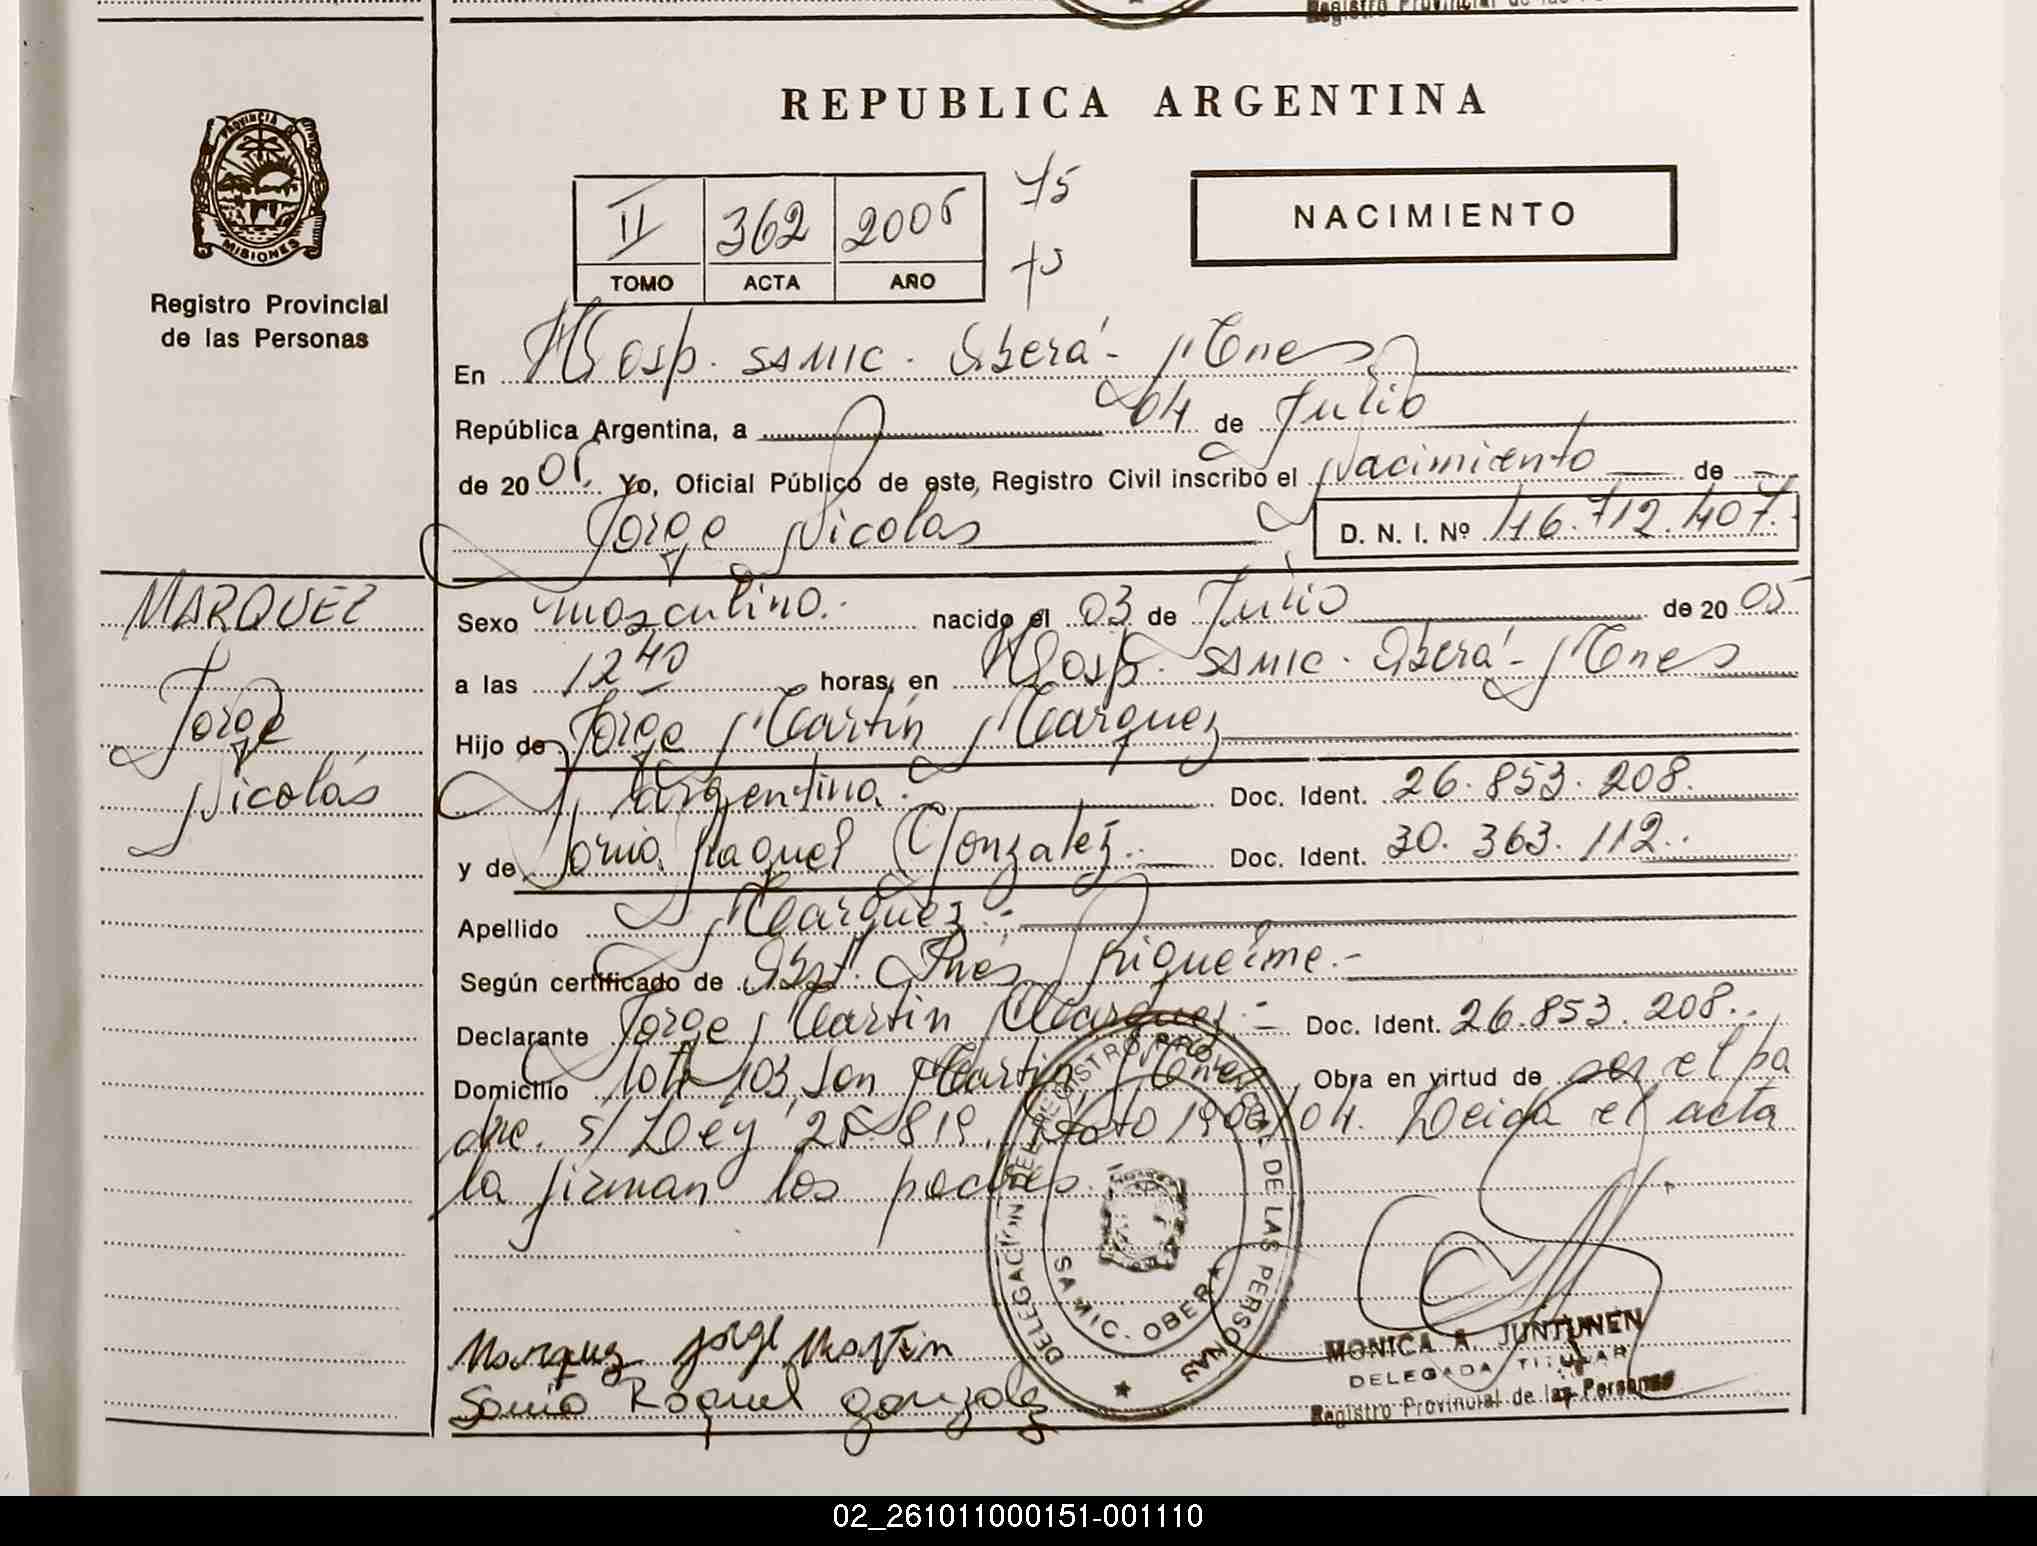 Registro Provincial de las
REPUBLICA ARGENTINA
PROVINCIA D
MISIONES
Registro Provincial
de las Personas
II 362 2005
TOMO ACTA AÑO
75
NACIMIENTO
En Hosp. SAMIC. Oberá - Mnes
República Argentina, a 04 de Julio
de 2005. Yo, Oficial Público de este, Registro Civil inscribo el Nacimiento de
Jorge Nicolás D. N. I. Nº 46.712.407.
MARQUEZ
Jorge
Nicolás
Sexo masculino. nacido el 03 de Julio de 2005
a las 12 40 horas, en Hosp. SAMIC. Oberá - Mnes
Hijo de Jorge Martín Marquez
Argentina. Doc. Ident. 26.853.208.
y de Sonia Raquel Gonzalez. Doc. Ident. 30.363.112.
Apellido Marquez.-
Según certificado de Obst. Inés Riquelme.-
Declarante Jorge Martin Marquez.- Doc. Ident. 26.853.208.
Domicilio lote 103, San Martin Mnes, Obra en virtud de ser el pa
dre. s/ Ley 25.819. Dto 1900/04. Leida el acta
la firman los padres.
DELEGACION DEL REGISTRO PROVINCIAL DE LAS PERSONAS
SAMIC. OBERA
Marquez Jorge Martin
Sonia Raquel gonzalez
MONICA A. JUNTUNEN
DELEGADA TITULAR
Registro Provincial de las Personas
02_261011000151-001110